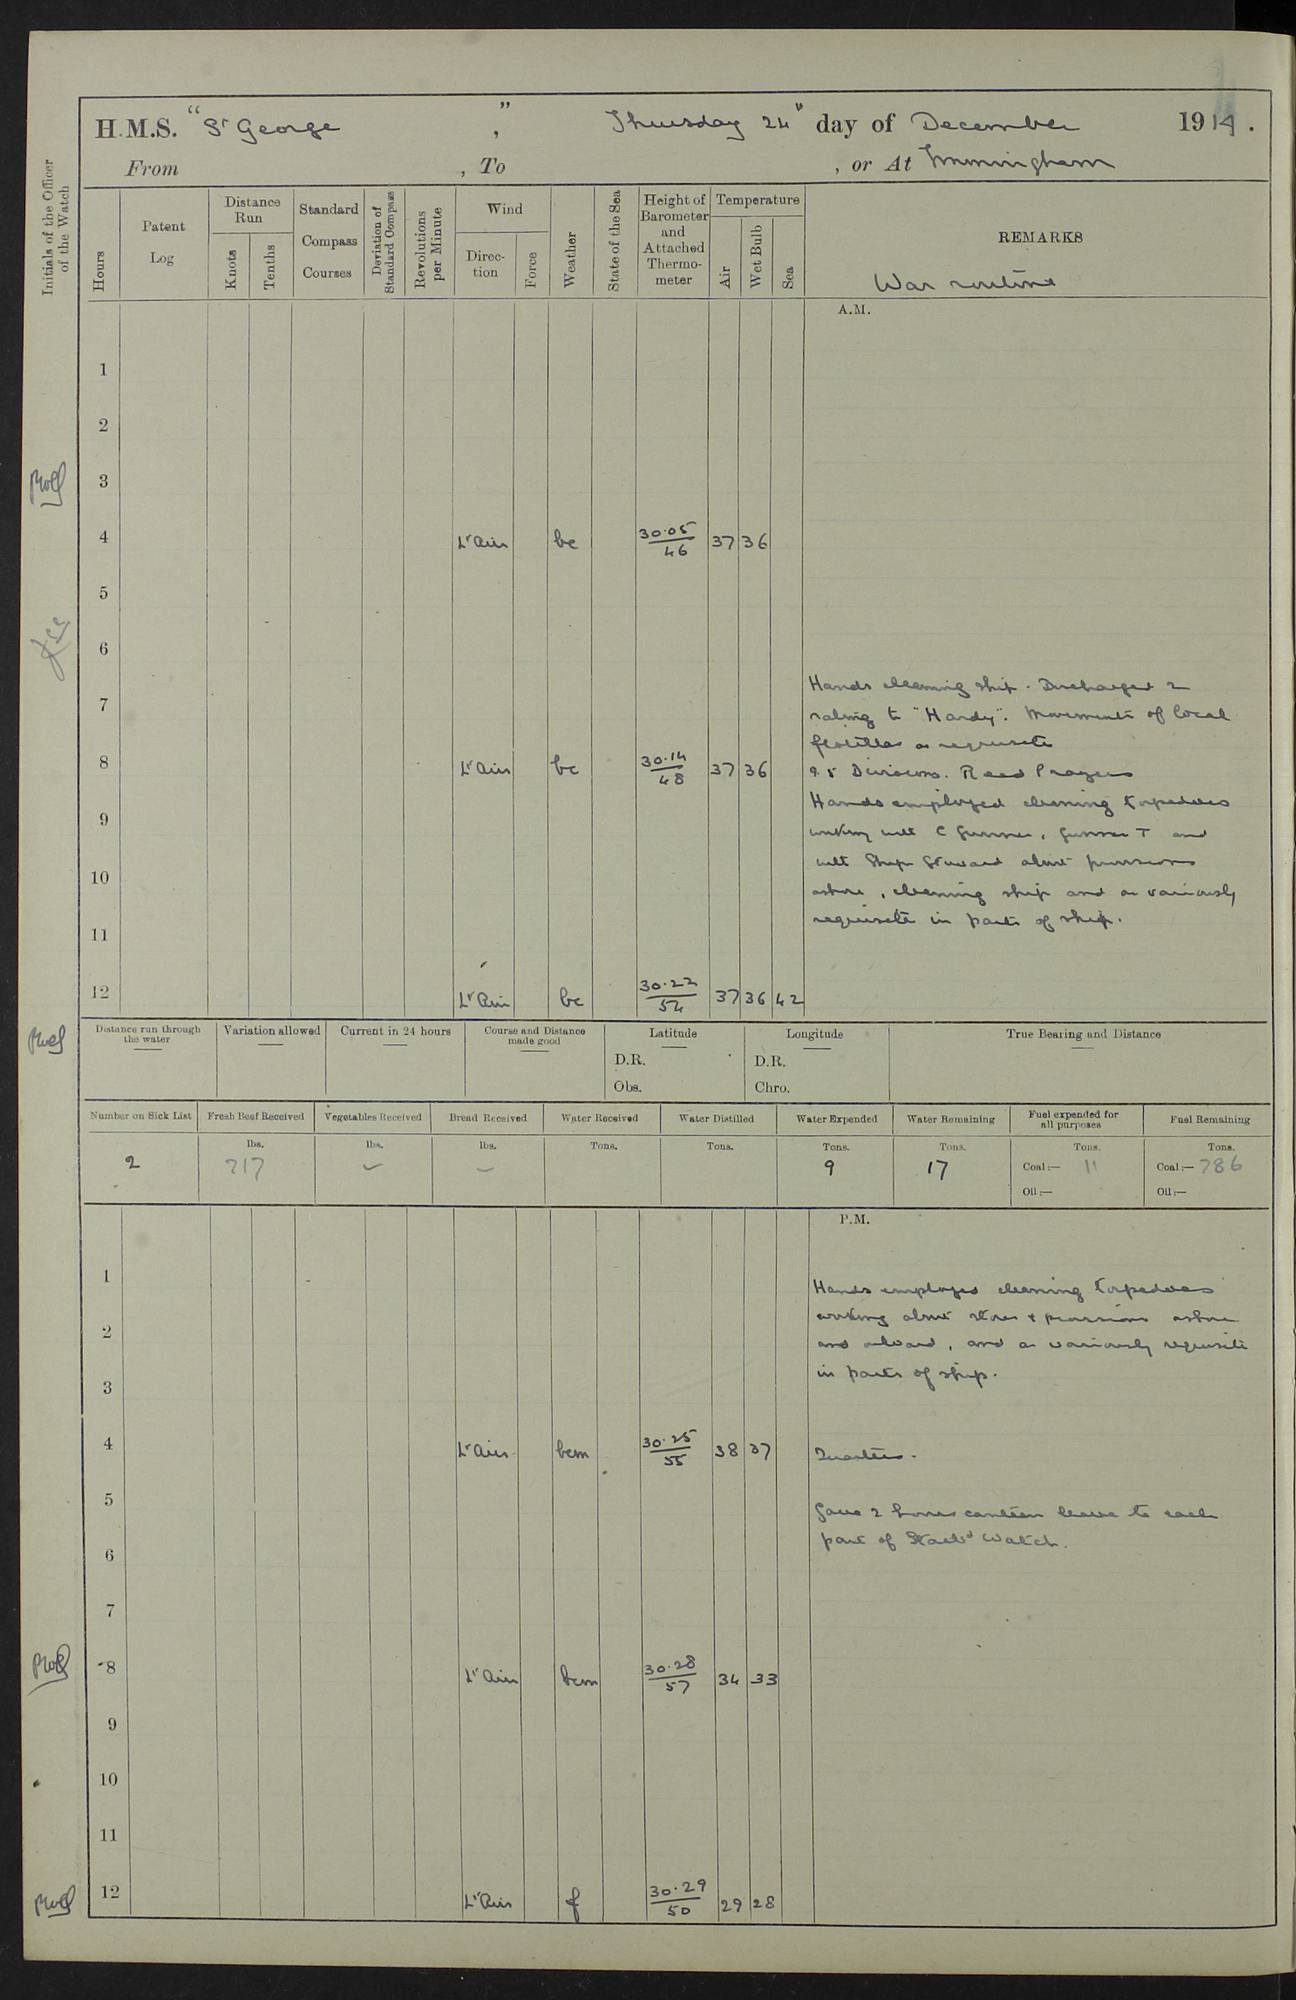 H.M.S. "St George", Thursday 24th day of December 1914.
From , To , or At Immingham
Initials of the Officer of the Watch
Hours
Patent Log
Distance Run
Knots
Tenths
Standard Compass Courses
Deviation of Standard Compass
Revolutions per Minute
Wind
Direction
Force
Weather
State of the Sea
Height of Barometer and Attached Thermometer
Temperature
Air
Wet Bulb
Sea
REMARKS
War routine
A.M.
1
2
3
4 Lt Airs bc 30.05 46 37 36
5
6
Hands cleaning ship. Discharged 2
7
rating to "Hardy". Movements of local
flotillas as requisite
8 Lt Airs bc 30.14 48 37 36
9.5 Divisions. Read Prayers
Hands employed cleaning torpedoes
9
working with C Gunner, Gunner T and
with Ships Steward about provisions
10
ashore, cleaning ship and as variously
requisite in parts of ship.
11
12 Lt Airs bc 30.22 54 37 36 42
Distance run through the water
Variation allowed
Current in 24 hours
Course and Distance made good
Latitude
D.R.
Obs.
Longitude
D.R.
Chro.
True Bearing and Distance
Number on Sick List
Fresh Beef Received
Vegetables Received
Bread Received
Water Received
Water Distilled
Water Expended
Water Remaining
Fuel expended for all purposes
Fuel Remaining
lbs. lbs. lbs. Tons. Tons. Tons. Tons. Tons. Tons.
2 717 – – 9 17 Coal:— 11 Coal:— 786
Oil:— Oil:—
P.M.
1
Hands employed cleaning torpedoes
working about stores & provisions ashore
2
and onboard, and as variously requisite
in parts of ship.
3
4 Lt Airs bcm 30.25 55 38 37 Quarters.
5
Gave 2 hours canteen leave to each
part of Starbd Watch.
6
7
8 Lt Airs bcm 30.28 57 34 33
9
10
11
12 Lt Airs f 30.29 50 29 28